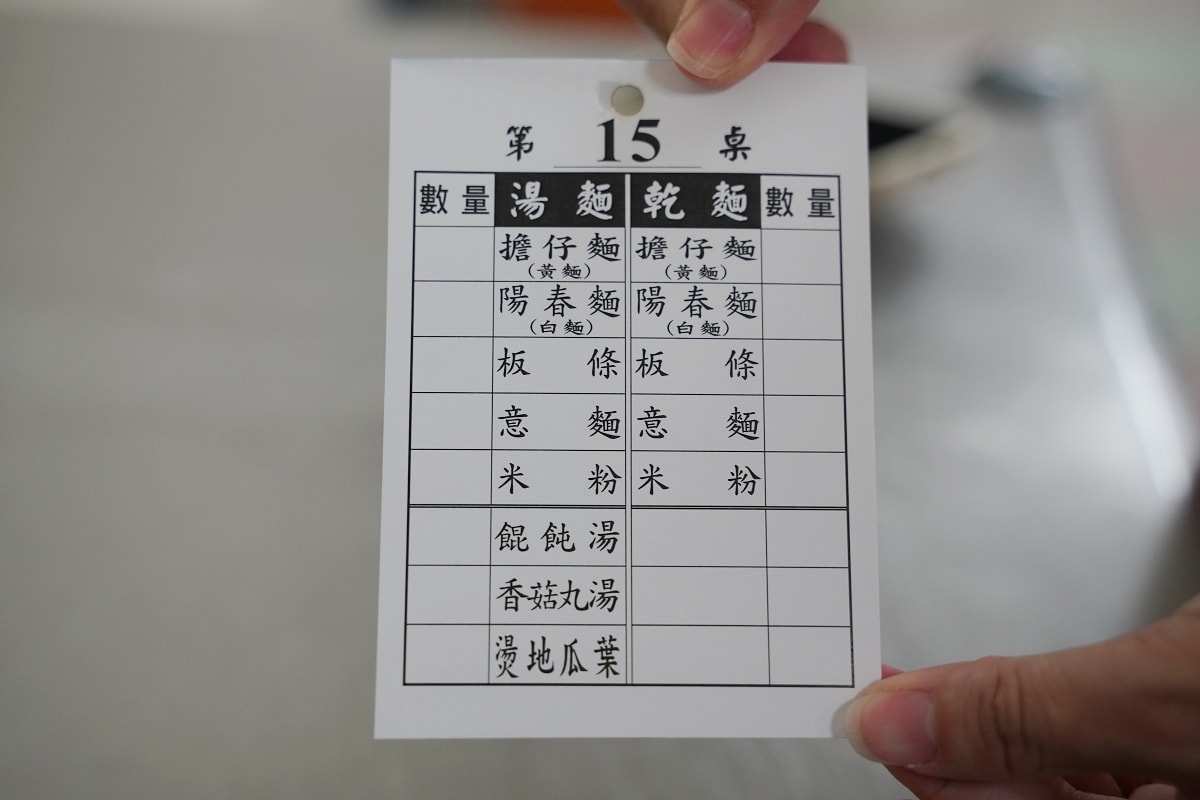 第 15 桌
數量 湯麵 乾麵 數量
擔仔麵 擔仔麵
(黃麵) (黃麵)
陽春麵 陽春麵
(白麵) (白麵)
板條 板條
意麵 意麵
米粉 米粉
餛飩湯
香菇丸湯
燙地瓜葉